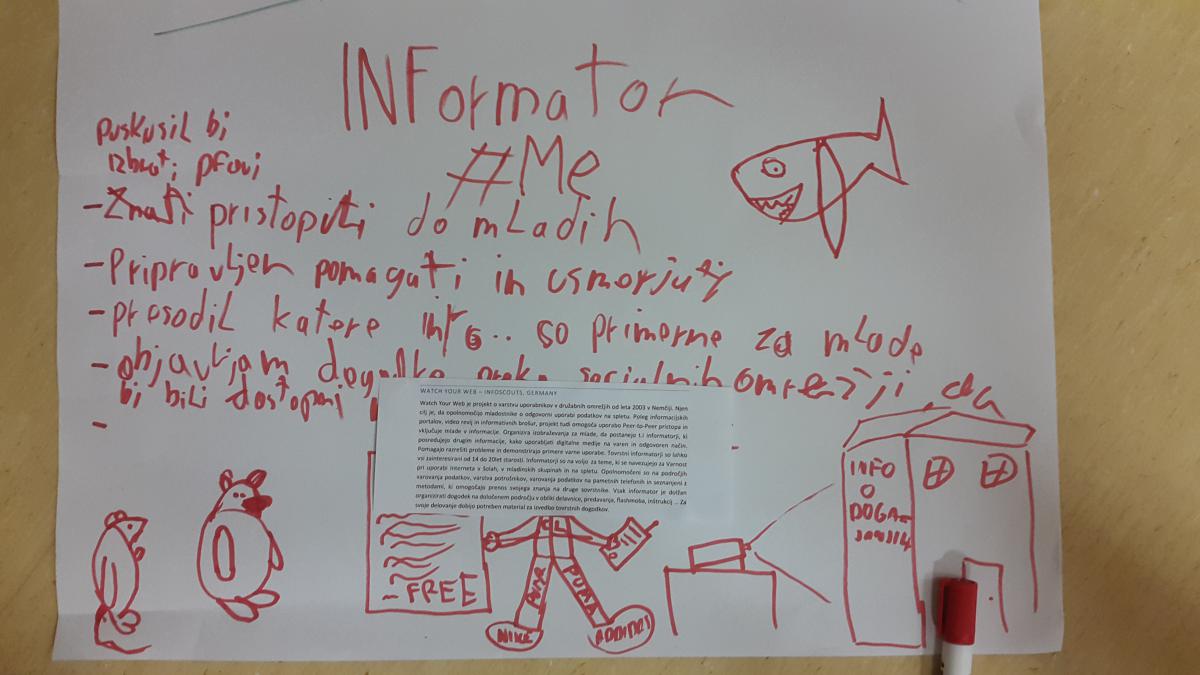 INFormator
#Me
puskusil bi
izbrat; pravi
-Znati pristopiti do mladih
-Pripravljen pomagati in usmerjuti
-presodil katere info.. so primerne za mlade
-objavljam dogodke preko socialnih omrežij, da
bi bili dostopni
-
WATCH YOUR WEB – INFOSCOUTS, GERMANY
Watch Your Web je projekt o varstvu uporabnikov v družabnih omrežjih od leta 2003 v Nemčiji. Njen
cilj je, da opolnomočijo mladostnike o odgovorni uporabi podatkov na spletu. Poleg informacijskih
portalov, video revij in informativnih brošur, projekt tudi omogoča uporabo Peer-to-Peer pristopa in
vključuje mlade v informacije. Organizira izobraževanja za mlade, da postanejo t.i informatorji, ki
posredujejo drugim informacije, kako uporabljati digitalne medije na varen in odgovoren način.
Pomagajo razrešiti probleme in demonstrirajo primere varne uporabe. Tovrstni informatorji so lahko
vsi zainteresirani od 14 do 20let starosti. Informatorji so na voljo za teme, ki se navezujejo za Varnost
pri uporabi interneta v šolah, v mladinskih skupinah in na spletu. Opolnomočeni so na področjih
varovanja podatkov, varstva potrošnikov, varovanja podatkov na pametnih telefonih in seznanjeni z
metodami, ki omogočajo prenos svojega znanja na druge sovrstnike. Vsak informator je dolžan
organizirati dogodek na določenem področju v obliki delavnice, predavanja, flashmoba, inštrukcij ... Za
svoje delovanje dobijo potreben material za izvedbo tovrstnih dogodkov.
INFO
O
DOGA-
~FREE
PUMA
PUMA
NIKE
ADDIDAS